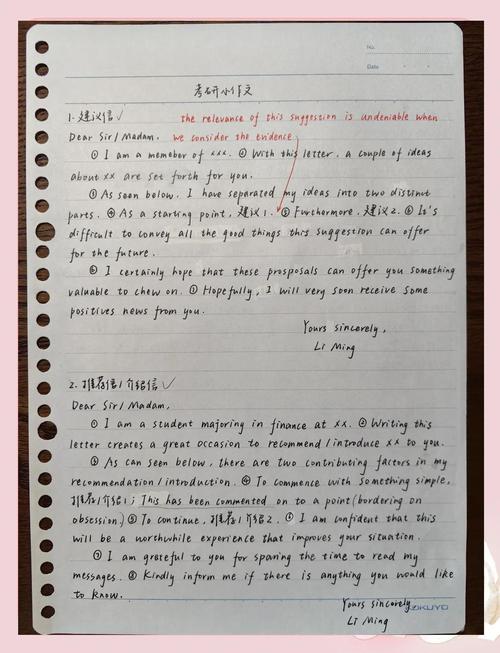 No.
Date
考研小作文
1. 建议信 ✓
the relevance of this suggestion is undeniable when
we consider the evidence.
Dear Sir/Madam.
① I am a memeber of xxx. ② With this letter, a couple of ideas
about xx are set forth for you.
③ As seen below, I have separated my ideas into two distinct
parts. ④ As a starting point, 建议1. ⑤ Furthermore, 建议2. ⑥ It's
difficult to convey all the good things this suggestion can offer
for the future.
⑥ I certainly hope that these prosposals can offer you something
valuable to chew on. ⑦ Hopefully, I will very soon receive some
positives news from you.
Yours sincerely,
Li Ming
2. 推荐信/介绍信 ✓
Dear Sir/Madam,
① I am a student majoring in finance at xx. ② Writing this
letter creates a great occasion to recommend/introduce xx to you.
③ As can seen below, there are two contributing factors in my
recommendation/introduction. ④ To commence with something simple,
推荐1/介绍1; This has been commented on to a point (bordering on
obsession.) ⑤ To continue, 推荐/介绍2. ⑥ I am confident that this
will be a worthwhile experience that improves your situation.
⑦ I am grateful to you for sparing the time to read my
messages. ⑧ Kindly inform me if there is anything you would like
to know.
Yours sincerely
KOKUYO
Li Ming